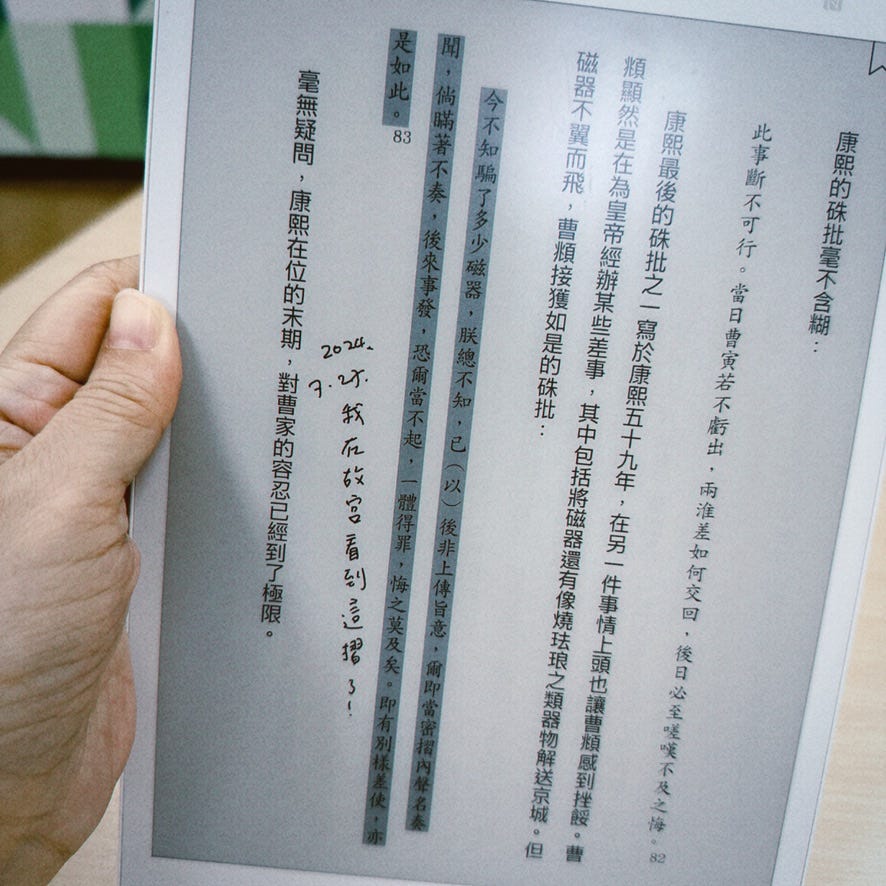 康熙的硃批毫不含糊：
此事斷不可行。當日曹寅若不虧出，兩淮差如何交回，後日必至嗟嘆不及之悔。82
康熙最後的硃批之一寫於康熙五十九年，在另一件事情上頭也讓曹頫感到挫餒。曹
頫顯然是在為皇帝經辦某些差事，其中包括將磁器還有像燒珐琅之類器物解送京城。但
磁器不翼而飛，曹頫接獲如是的硃批：
今不知騙了多少磁器，朕總不知，已（以）後非上傳旨意，爾即當密摺內聲名奏
聞，倘瞞著不奏，後來事發，恐爾當不起，一體得罪，悔之莫及矣。即有別樣差使，亦
是如此。83
2024.
7.25.我在故宮看到這摺了！
毫無疑問，康熙在位的末期，對曹家的容忍已經到了極限。